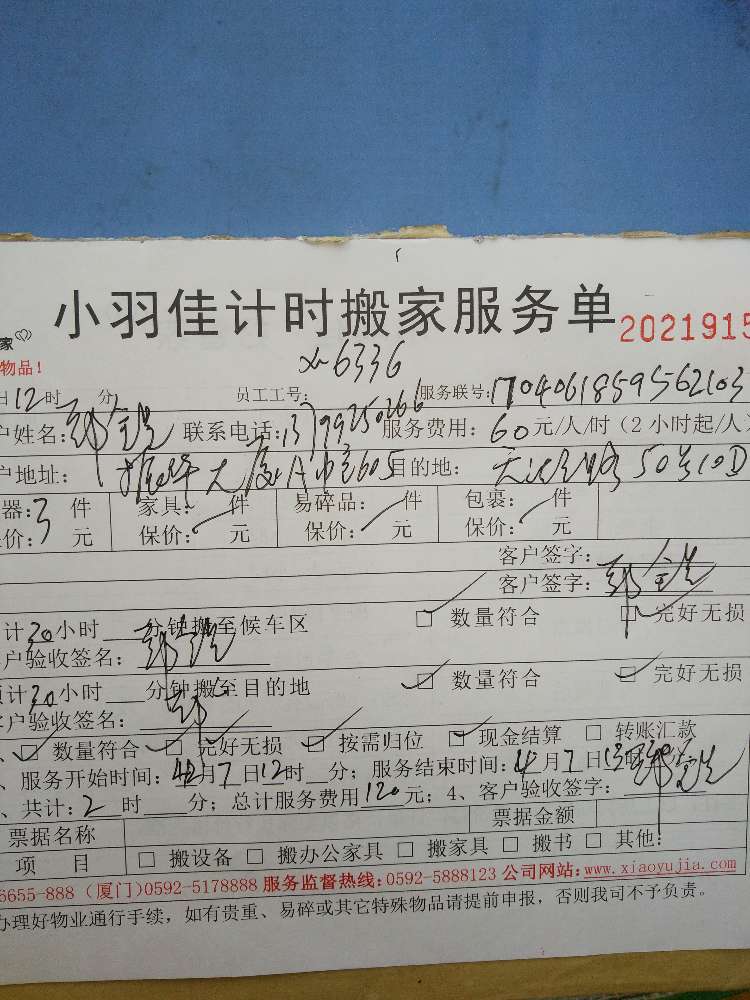 小羽佳计时搬家服务单 2021915
家
物品!
x-6336
日12时 分 员工工号: 服务联号:1704061859562103
户姓名: 联系电话:13799250266 服务费用:60元/人/时(2小时起/人
户地址: 振华大厦A幢605 目的地: 50号10D
器:3 件 家具: 件 易碎品: 件 包裹: 件
价: 元 保价: 元 保价: 元 保价: 元
客户签字:
客户签字:
计30小时 分钟搬至候车区 □ 数量符合 □ 完好无损
户验收签名:
预计30小时 分钟搬至目的地 □ 数量符合 □ 完好无损
户验收签名:
、□ 数量符合 □ 完好无损 □ 按需归位 □ 现金结算 □ 转账汇款
、服务开始时间: 4月7日12时 分; 服务结束时间: 4月7日13
、共计: 2 时 分; 总计服务费用120元; 4、客户验收签字:
票据名称 票据金额
项 目 □ 搬设备 □ 搬办公家具 □ 搬家具 □ 搬书 □ 其他:
6655-888 (厦门)0592-5178888 服务监督热线:0592-5888123 公司网站:www.xiaoyujia.com
办理好物业通行手续,如有贵重、易碎或其它特殊物品请提前申报,否则我司不予负责。